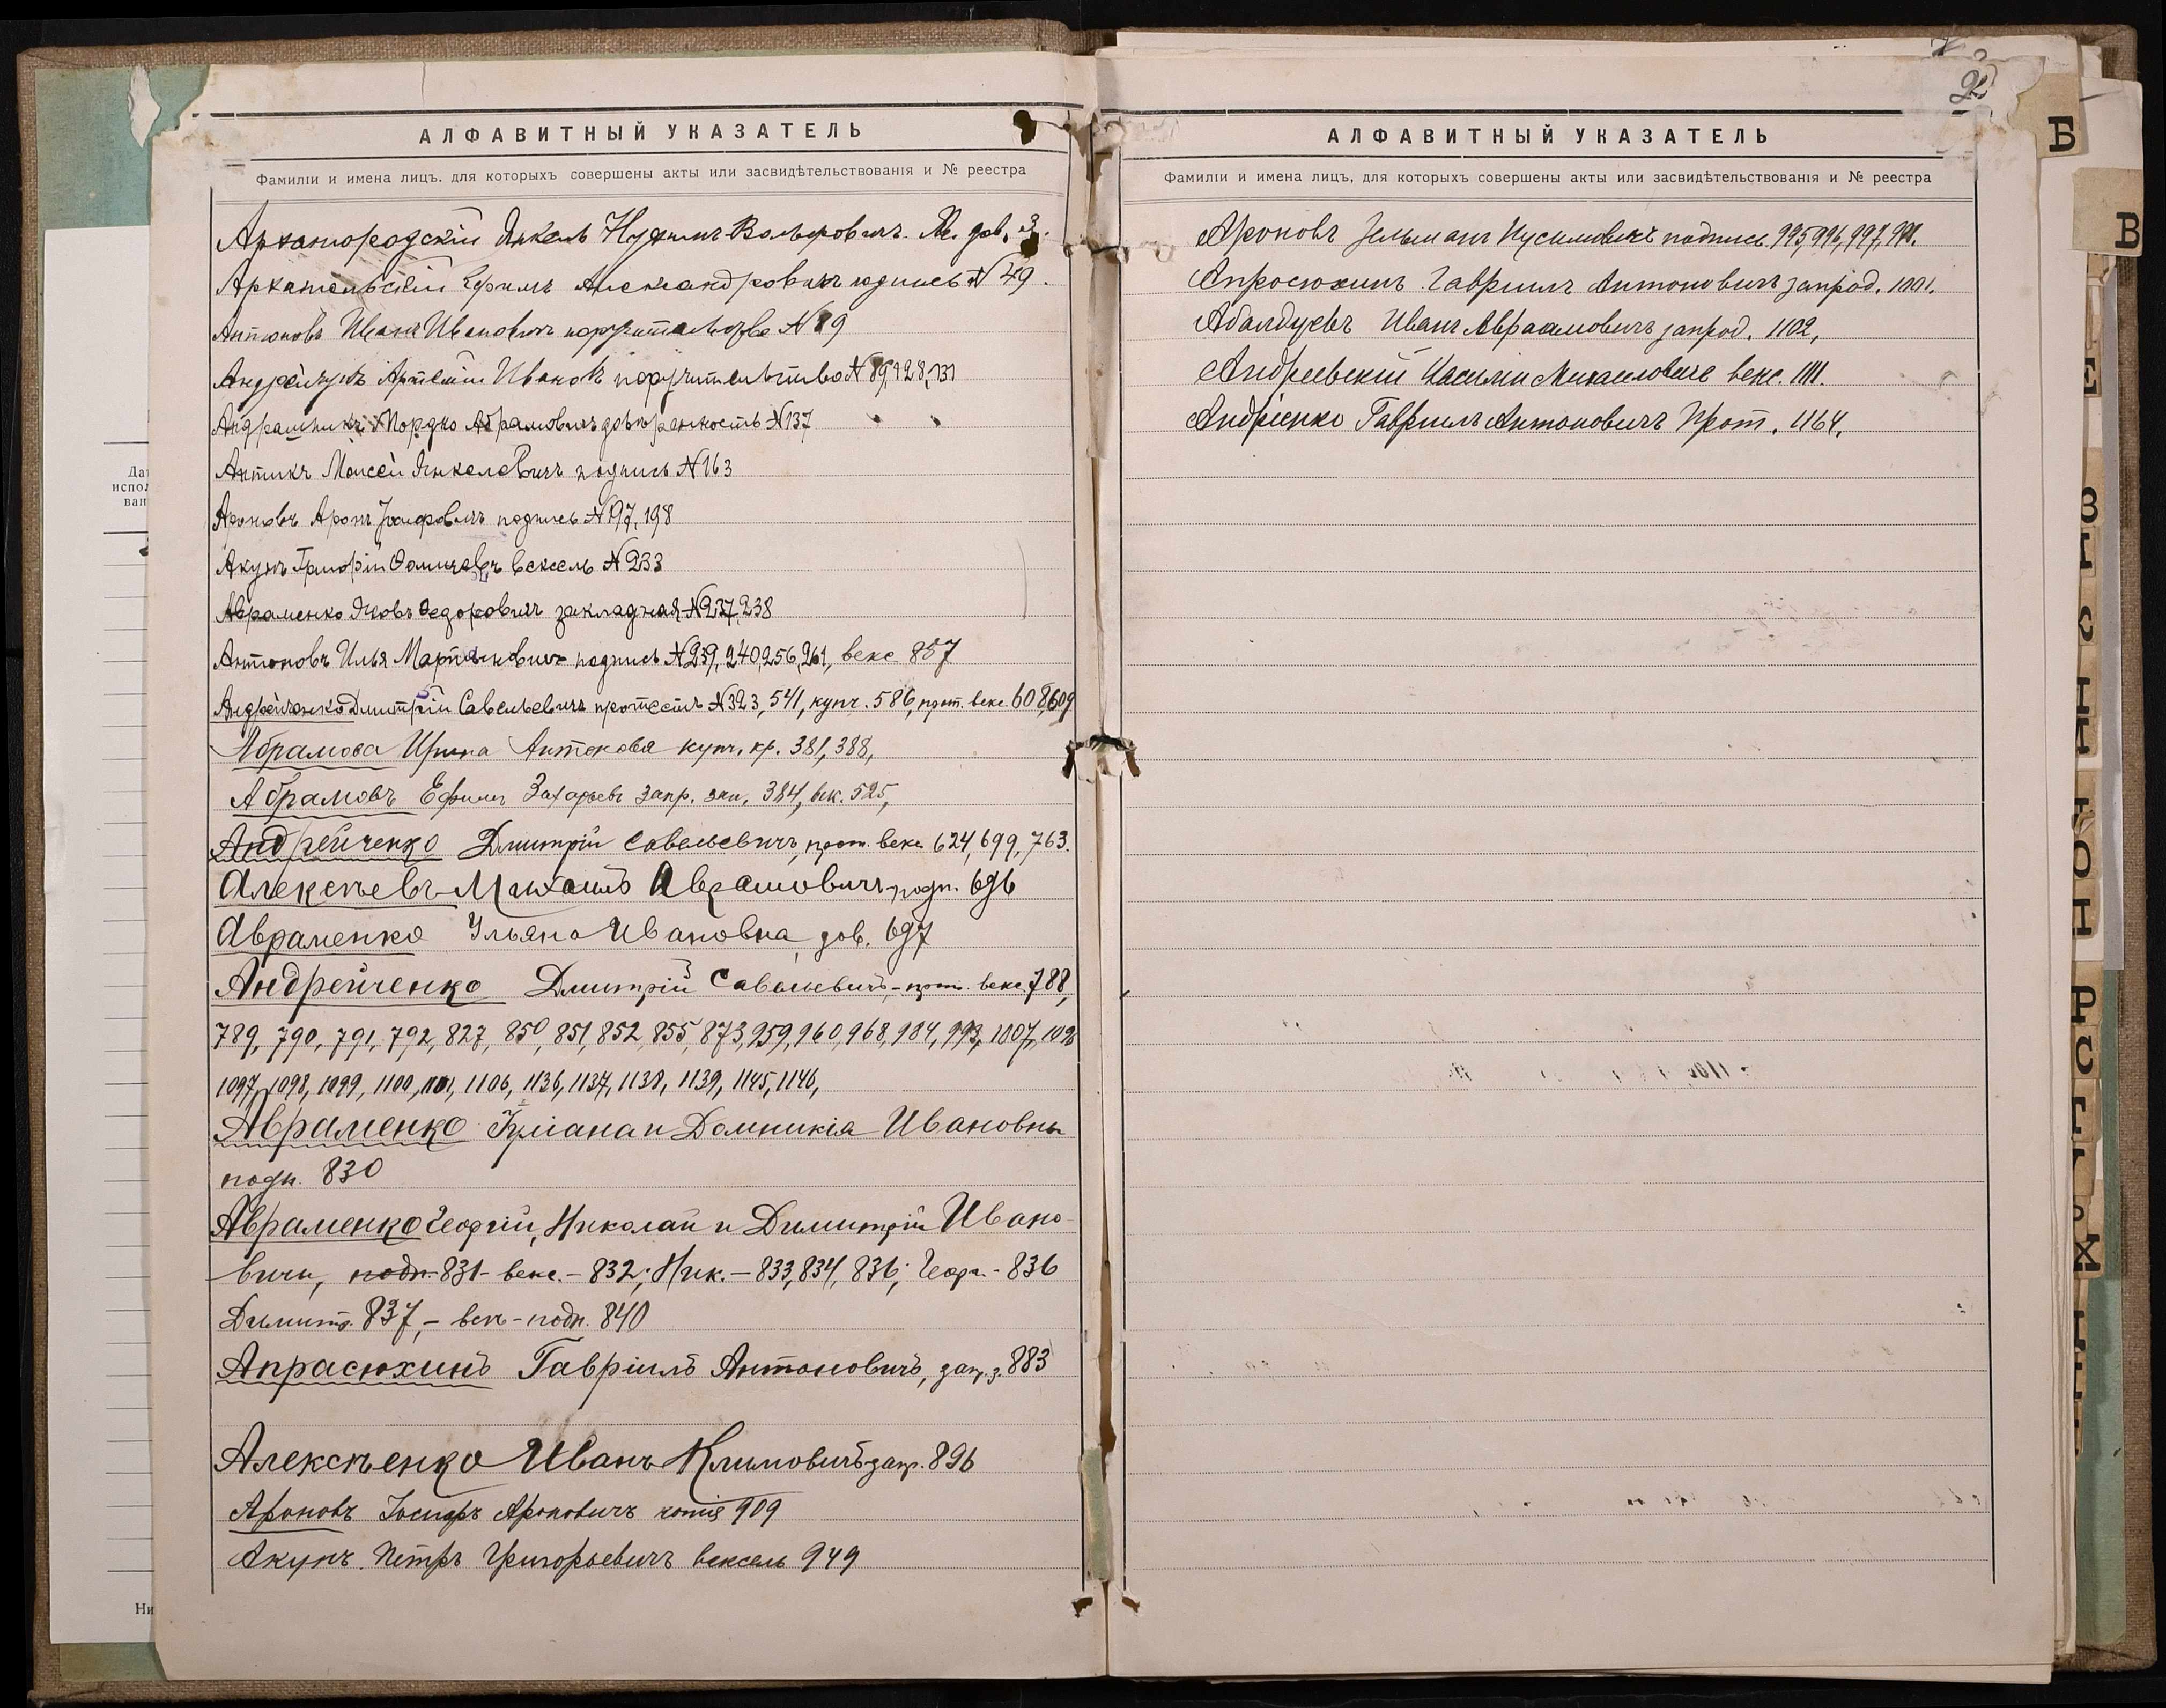 АЛФАВИТНЫЙ УКАЗАТЕЛЬ
Фамиліи и имена лицъ, для которыхъ совершены акты или засвидѣтельствованія и № реестра
Архангородскій Янкель Нухимъ Вольфовичъ. дов. 3.
Архангельскій Ефимъ Александровичъ подпись № 49.
Антоновъ Иванъ Ивановичъ поручительство № 89
Андрейчукъ Артемій Ивановъ поручительство № 89, 128, 131
Мордко Абрамовичъ довѣренность № 137
Антикъ Моисей Янкелевичъ подпись № 163
Ароновъ Аронъ Іосифовичъ подпись № 197, 198
Акунъ Григорій вексель № 233
Авраменко Яковъ Федоровичъ закладная № 237, 238
Антоновъ Илья Мартыновичъ подпись № 239, 240, 256, 261, векс 857
Андрейченко Дмитрій Савельевичъ протестъ № 323, 541, купч. 586, прот. векс. 608, 609
Абрамова Ирина Антонова купч. кр. 381, 388,
Абрамовъ Ефимъ Захарьевъ запр. зап. 384, век. 525,
Андрейченко Дмитрій Савельевичъ, прот. векс 624, 699, 763.
Алексѣевъ Михаилъ Аврамовичъ подп. 696
Авраменко Ульяна Ивановна, дов. 697
Андрейченко Дмитрій Савельевичъ, - прот. векс. 788,
789, 790, 791, 792, 827, 850, 851, 852, 855, 873, 959, 960, 968, 984, 993, 1007, 1096
1097, 1098, 1099, 1100, 1101, 1106, 1136, 1137, 1138, 1139, 1145, 1146,
Авраменко Іуліана и Домникія Ивановны
подп. 830
Авраменко Георгій, Николай и Димитрій Ивано-
вичи, подп. 831 - векс. - 832; Ник. - 833, 834, 836; Георг. - 836
Димитр. 837, - век - подп. 840
Апрасюхинъ Гавріилъ Антоновичъ, зап. з. 883
Алексѣенко Иванъ Климовичъ запр. 896
Ароновъ Іосифъ Ароновичъ копія 909
Акунъ Петръ Григорьевичъ вексель 949
2
АЛФАВИТНЫЙ УКАЗАТЕЛЬ
Фамиліи и имена лицъ, для которыхъ совершены акты или засвидѣтельствованія и № реестра
Ароновъ Зельманъ подпись 995, 996, 997, 998.
Апросюхинъ Гавріилъ Антоновичъ запрод. 1001.
Абалдуевъ Иванъ Авраамовичъ запрод. 1102,
Андреевскій Василій Михаиловичъ векс. 1111.
Андріенко Гавріилъ Антоновичъ Прот. 1164.
Б
В
Е
З
І
Р
С
Х